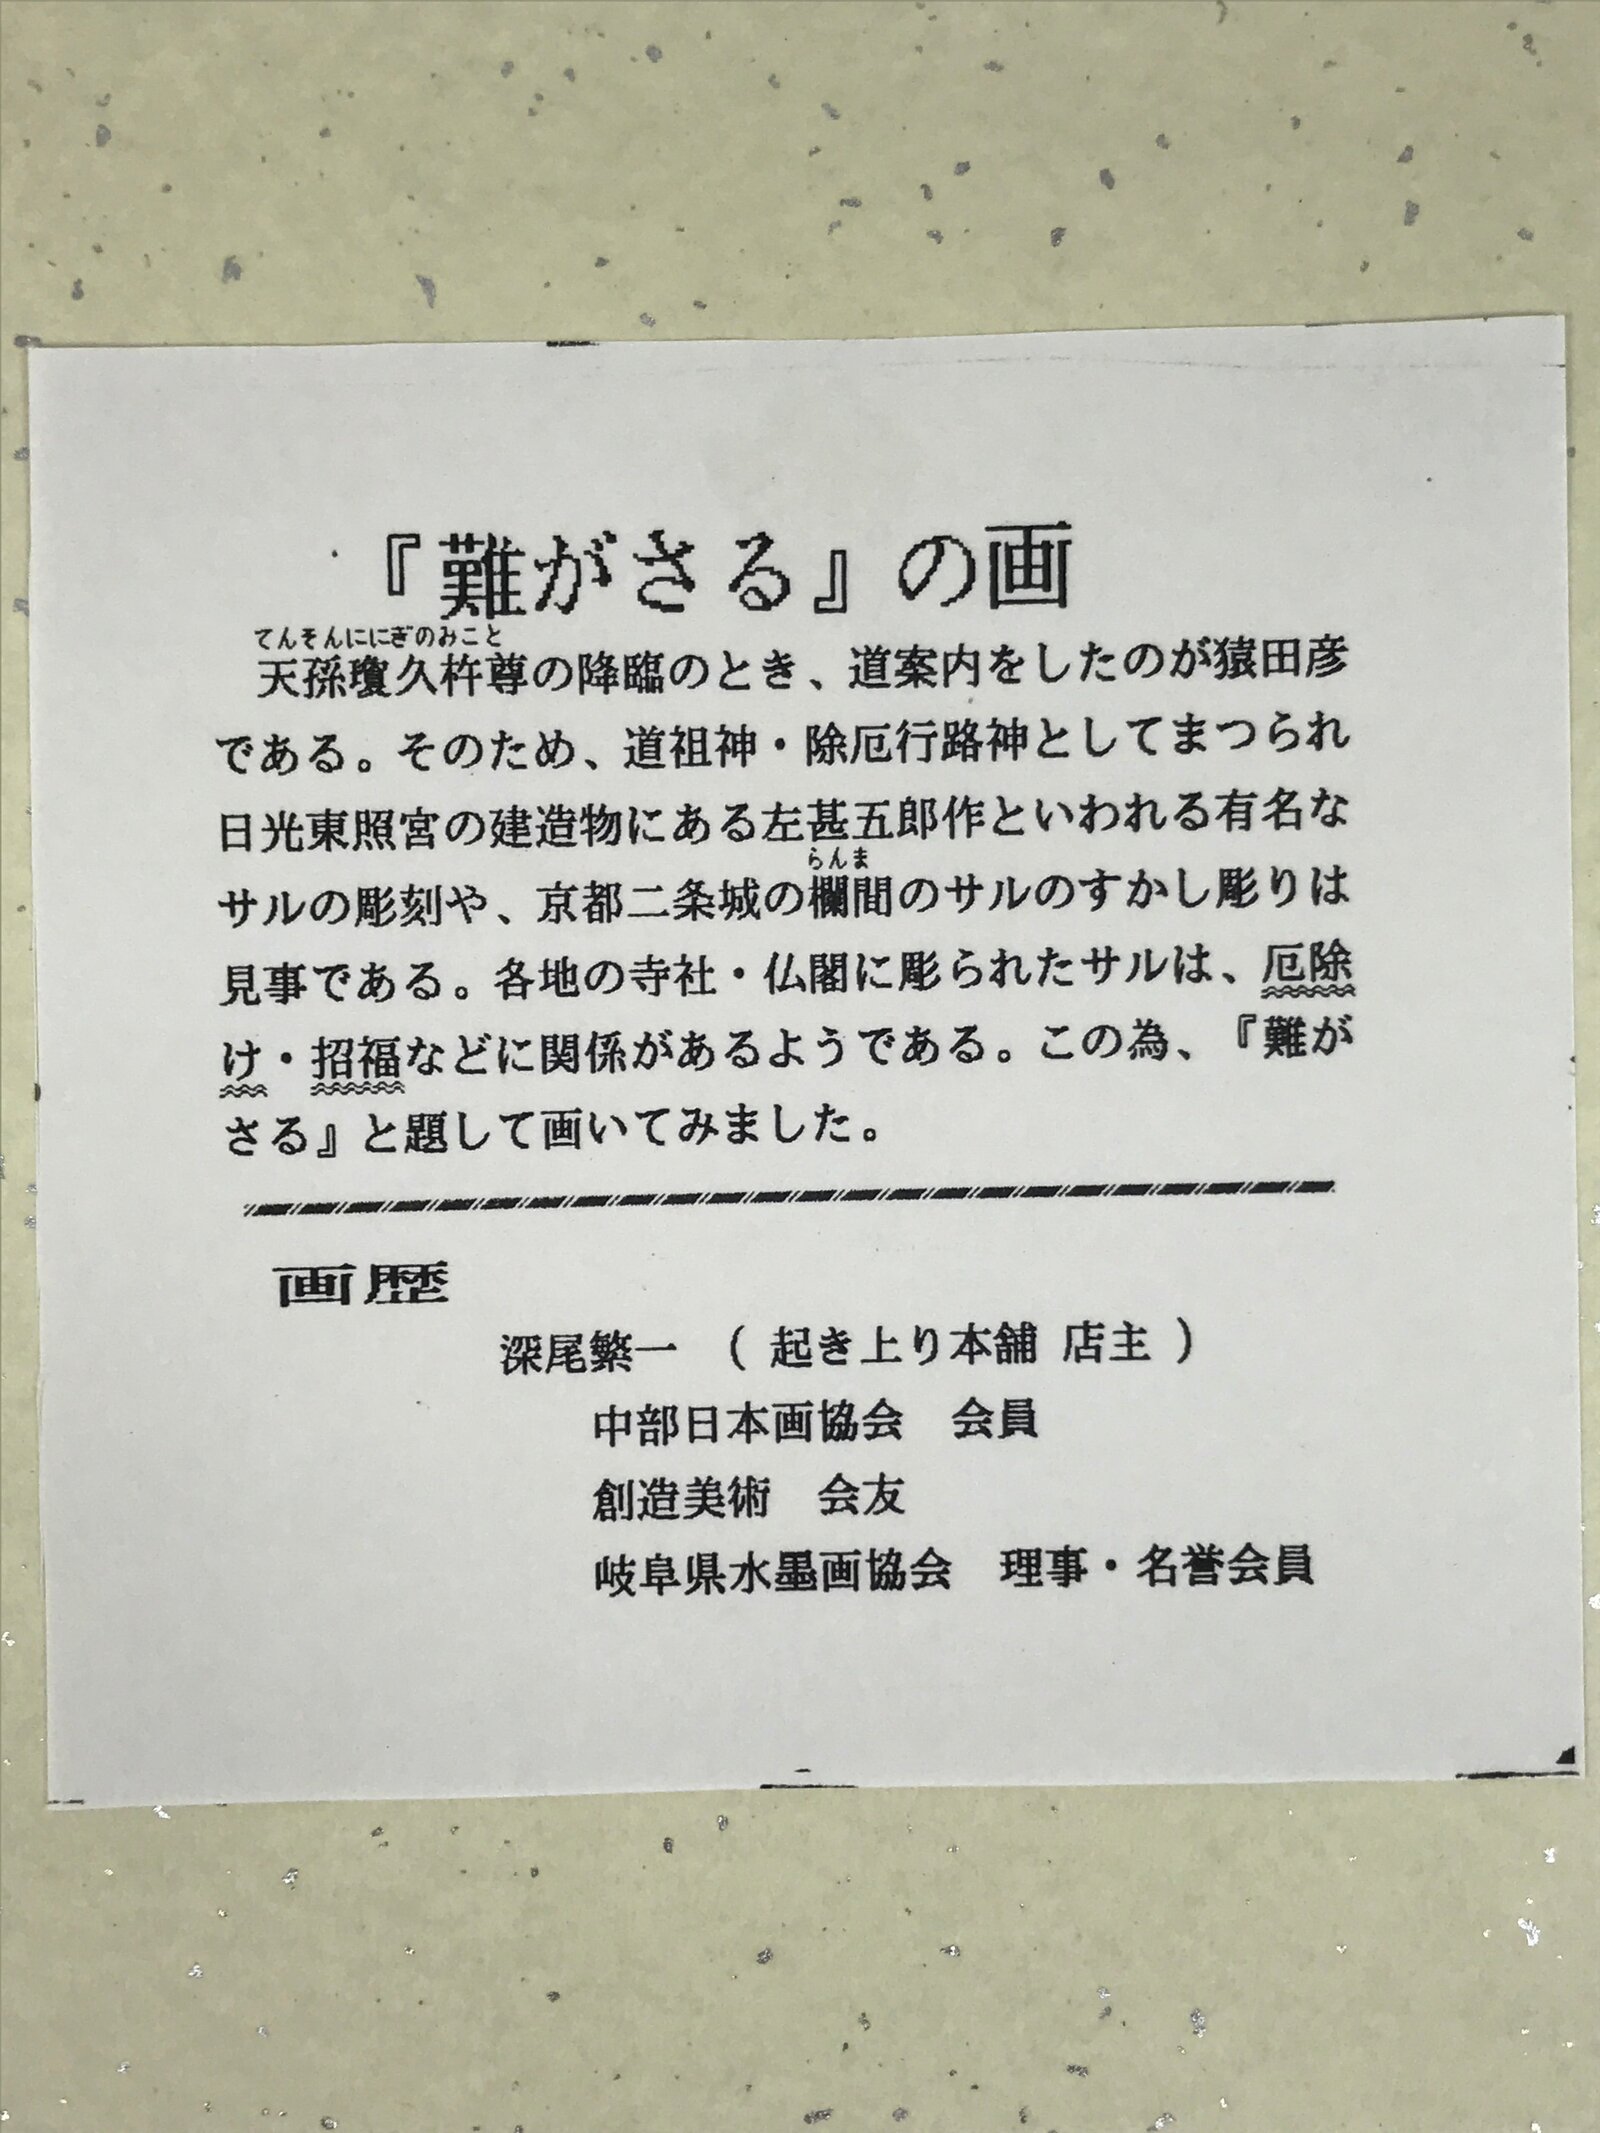 『難がさる』の画
てんそんににぎのみこと
天孫瓊久杵尊の降臨のとき、道案内をしたのが猿田彦
である。そのため、道祖神・除厄行路神としてまつられ
日光東照宮の建造物にある左甚五郎作といわれる有名な
らんま
サルの彫刻や、京都二条城の欄間のサルのすかし彫りは
見事である。各地の寺社・仏閣に彫られたサルは、厄除
け・招福などに関係があるようである。この為、『難が
さる』と題して画いてみました。
画歴
深尾繁一 ( 起き上り本舗 店主 )
中部日本画協会 会員
創造美術 会友
岐阜県水墨画協会 理事・名誉会員